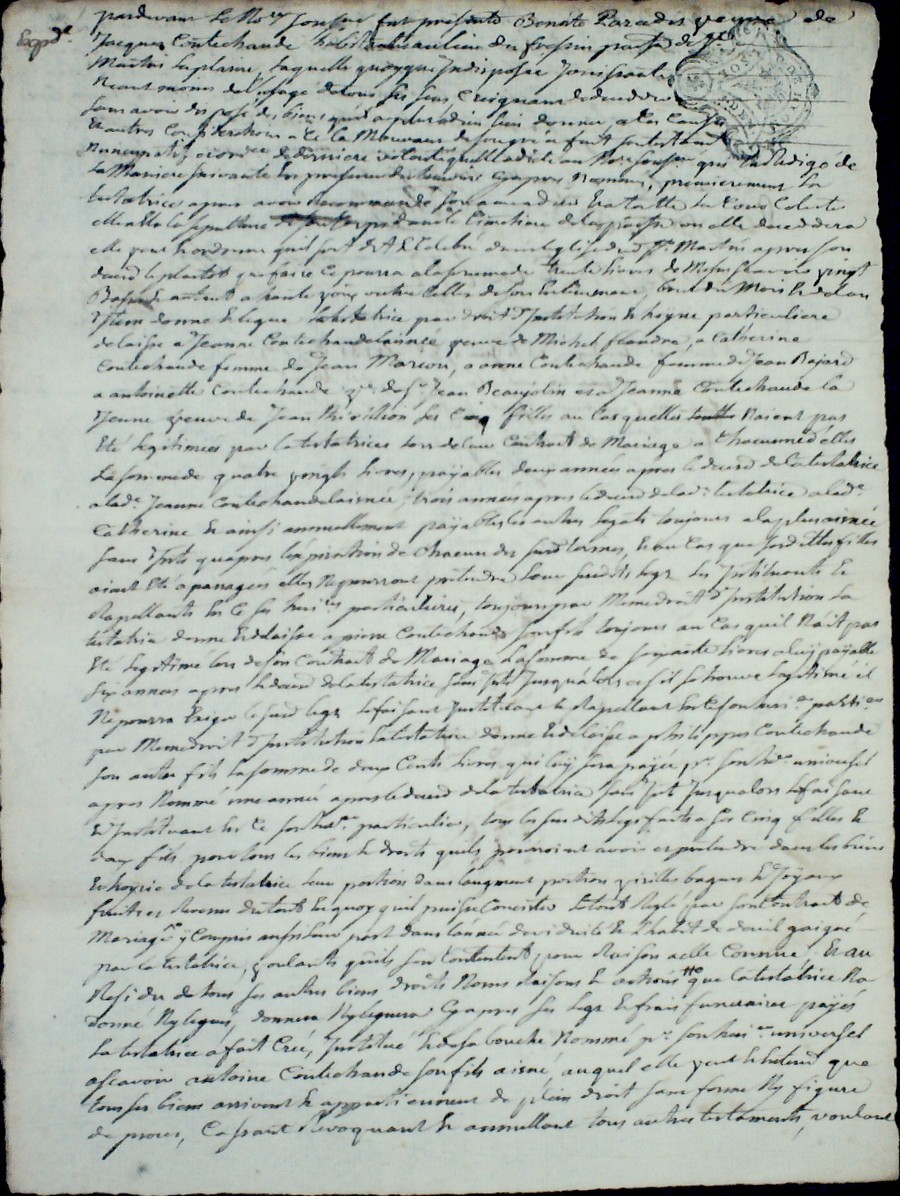 pardevant le No.re Jousse fut présente Benoite Paradis veuve de
Expd.e
Jacques Contechaude habitante au lieu du frossin parr.se de St
Martin la plaine, laquelle quoyque Indisposée Jouissante
Neant moins de l'usage de tous ses sens, Craignant de deceder
sans avoir disposé des biens quil a plu a dieu luy donner, a les causes
Et autres Considerations a Elle Mouvants de son gré a fait son testament
Nuncupatif et ordce de derniere volonté quelle a dicté au No.re Jousse qui la Redigé de
la Maniere suivante En presence des temoins Cy apres Nommés, premierement la
testatrice apres avoir Recommandé son ame a dieu Et a toute la Cour Celeste
elle Elit la sepulture de son Corps dans le Cimetiere de la paroisse ou elle decedera
elle veut Et ordonne quil soit dit Et Celebré dans leglise dud St. Martin apres son
deced le plustot que faire ce pourra a la somme de trente livres de Messes scavoir vingt
Basses autant a haute voix outre Celles de son Enterrement, bout du Mois Et de lan
Item donne Et legue la testatrice par droit d'Institution Et hoyrie particuliere
delaisse a Jeanne Contechaude lainée veuve de Michel flandre, a Catherine
Contechaude femme de Jean Marcou, a anne Contechaude femme de Jean Bajard
a antoinette Contechaude v.e de f.u Jean Beaujolin et a Jeanne Contechaude la
Jeune veuve de Jean Thivillion ses Cinq filles au Cas quelles Naient pas
Eté legitimées par la testatrice lors de leur Contrat de Mariage a Chacune d'elles
La somme de quatre vingts livres, payables deux années apres le deced de la testatrice
a lad.e Jeanne Contechaude lainée, trois années apres le deced de lad.e testatrice a lad.e
Catherine Et ainsi annuellement payables les autres legats toujours a la plus ainée
sans Intt quapres lexpiration de Chacun des susd termes, Et au Cas que sesdittes filles
aient Eté apanagées elles Ne pourront pretendre leur susdits legs Les Instituants Et
Rapellants En Ce ses heri.res particulieres, toujours par Meme droit d'Institution la
testatrice donne Et delaisse a pierre Contechaude son fils toujours au Cas quil Nait pas
Eté legitimé lors de son Contrat de Mariage la somme de soixante livres a luy payable
six années apres le deced de la testatrice sans Intt Jusqualors et sil se trouve legitimé il
Ne pourra Exiger le susd legs le faisant Instituant Et Rapellant En Ce son heri.er parti.er
par Meme droit d'Institution la testatrice donne Et delaisse a philippe Contechaude
son autre fils la somme de deux Cents livres qui luy sera payée pr. son her. universel
apres Nommé une année apres le deced de la testatrice sans Intt Jusqualors le faisant
Et Instituant En Ce son her. particulier, tous les susdits legs faits a ses Cinq filles Et
deux fils pour tous les biens Et droits quils pourroient avoir et pretendre dans les biens
Et hoyrie de la testatrice leur portion dans laugment portions virilles bagues Et Joyaux
fruits et Revenus du tout En quoy quil puisse Consister Le tout Reglé par son Contrat de
Mariage y Compris aussi leur part dans lannée de viduité Et lhabit de deuil gaigné
par la testatrice, voulants quils soit Contentent, pour Raison a elle Connue, Et au
Residu de tous ses autres biens droits Noms Raisons Et actions que la testatrice Na
donné Ny legué, donnera Ny leguera Cy apres ses legs Et frais funeraires payés
La testatrice a fait Créé, Institué Et de sa bouche Nommé pr. son heri.er universel
ascavoir antoine Contechaude son fils aisné, auquel elle veut Et Entend que
tous ses biens arrivent Et appartiennent de plein droit sans forme Ny figure
de procès, Cassant Revoquant Et annullant tous autres testaments, voulant